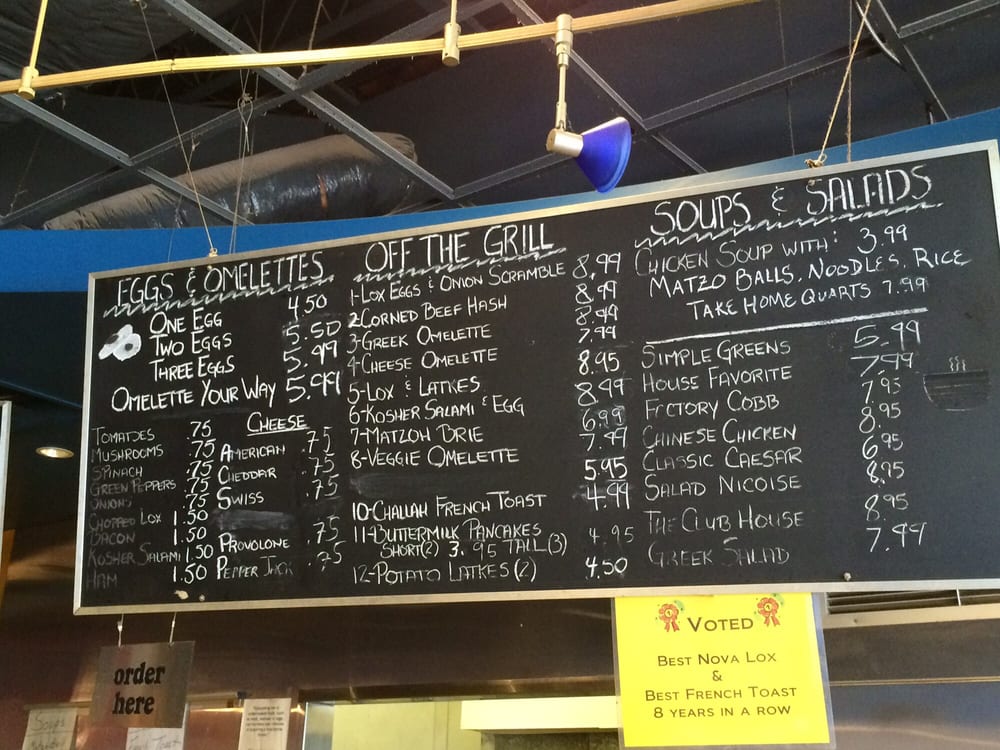 EGGS & OMELETTES
ONE EGG 4.50
TWO EGGS 5.50
THREE EGGS 5.99
OMELETTE YOUR WAY 5.99
TOMATOES .75
MUSHROOMS .75
SPINACH .75
GREEN PEPPERS .75
ONIONS .75
CHOPPED LOX 1.50
BACON 1.50
KOSHER SALAMI 1.50
HAM 1.50
CHEESE
AMERICAN .75
CHEDDAR .75
SWISS .75
PROVOLONE .75
PEPPER JACK .75
OFF THE GRILL
1-LOX EGGS & ONION SCRAMBLE 8.99
2-CORNED BEEF HASH 8.99
3-GREEK OMELETTE 8.99
4-CHEESE OMELETTE 7.99
5-LOX & LATKES 8.95
6-KOSHER SALAMI & EGG 8.99
7-MATZOH BRIE 6.99
8-VEGGIE OMELETTE 7.99
5.95
10-CHALLAH FRENCH TOAST 4.99
11-BUTTERMILK PANCAKES
SHORT(2) 3.95 TALL(3) 4.95
12-POTATO LATKES (2) 4.50
SOUPS & SALADS
CHICKEN SOUP WITH: 3.99
MATZO BALLS, NOODLES, RICE
TAKE HOME QUARTS 7.99
SIMPLE GREENS 5.99
HOUSE FAVORITE 7.99
FACTORY COBB 7.95
CHINESE CHICKEN 8.95
CLASSIC CAESAR 6.95
SALAD NICOISE 8.95
THE CLUB HOUSE 8.95
GREEK SALAD 7.99
order
here
VOTED
BEST NOVA LOX
&
BEST FRENCH TOAST
8 YEARS IN A ROW
Soups